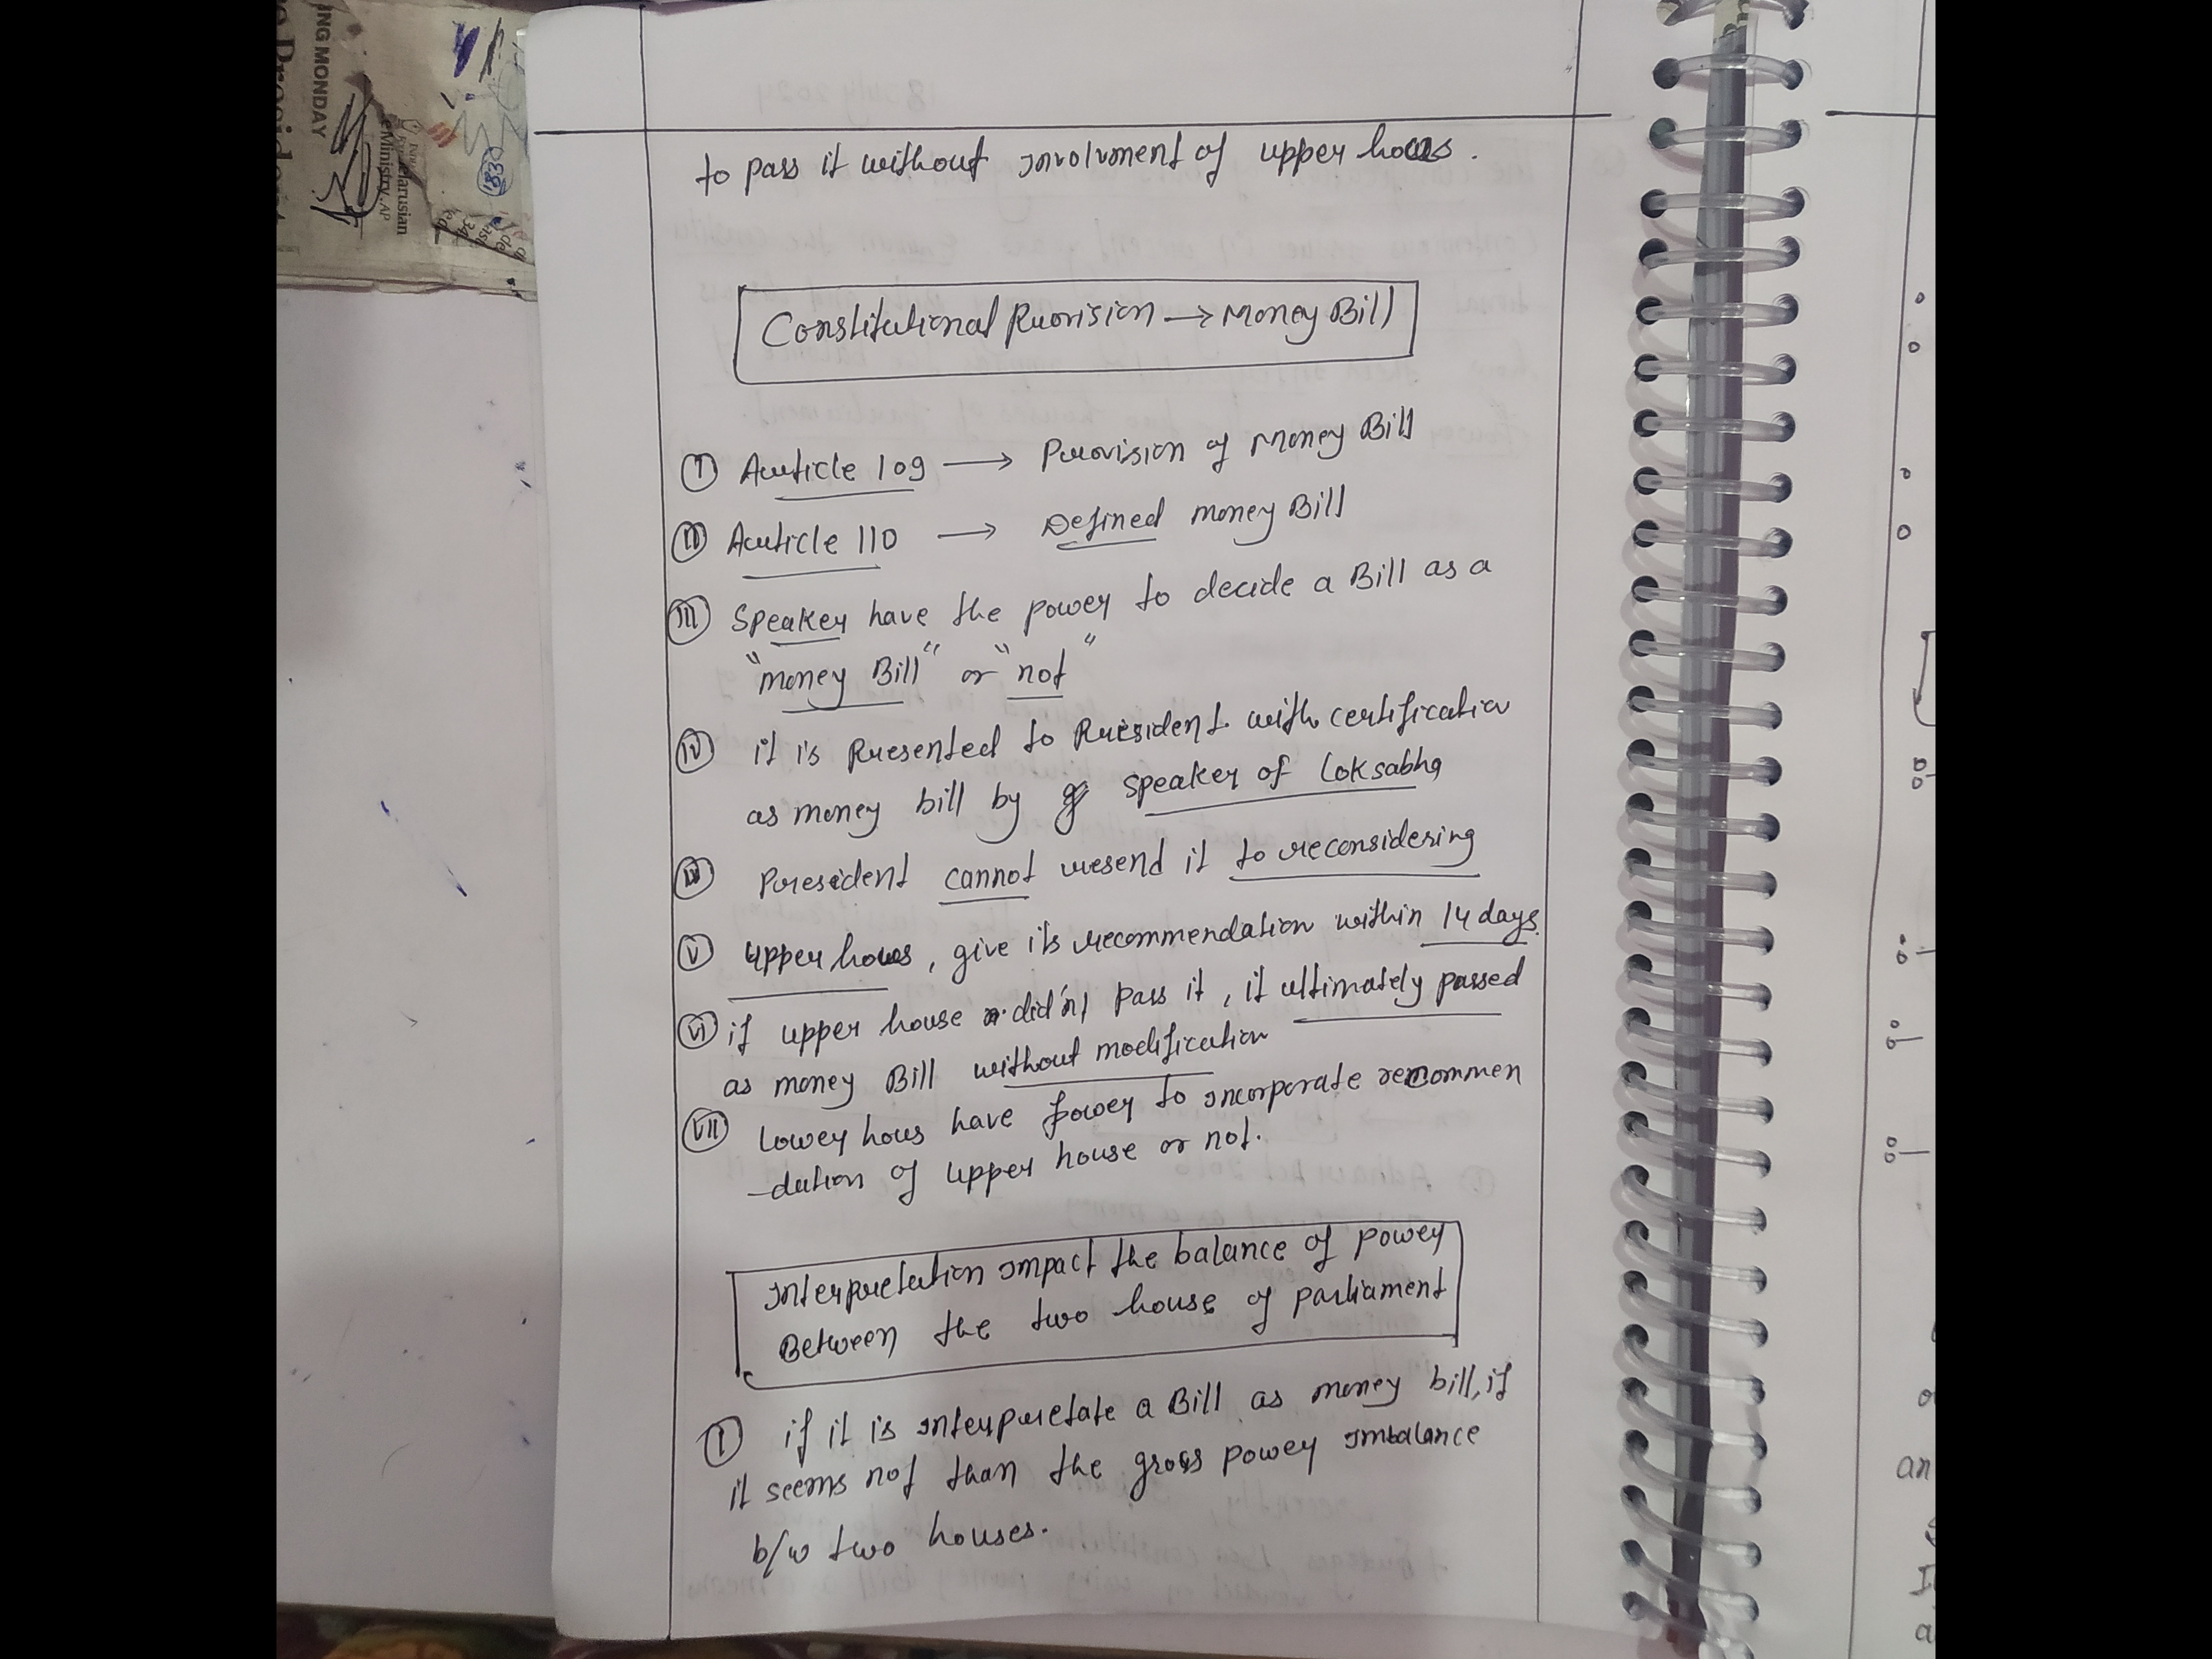 ING MONDAY
elarusian
eMinistry. AP
to pass it without involvment of upper hous.
Constitutional Provision → Money Bill
(I) Article 109 → Provision of Money Bill
(II) Article 110 → Defined money Bill
(III) Speaker have the power to decide a Bill as a
"money Bill" or "not"
(IV) it is Presented to President with certification
as money bill by speaker of Loksabha
President cannot resend it to reconsidering
(V) upper hous, give its recommendation within 14 days.
(VI) if upper house did'nt pass it, it ultimately passed
as money Bill without modification
(VII) Lower hous have power to incorporate recommen
-dation of upper house or not.
Interpretation impact the balance of power
Between the two house of parliament
(1) if it is interpretate a Bill as money bill, if
it seems not than the gross power imbalance
b/w two houses.
an